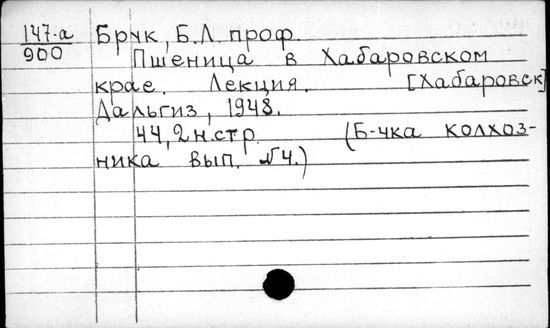 147-а Брук, Б.Л. проф.
900 Пшеница в Хабаровском
крае. Лекция. [Хабаровск]
Дальгиз, 1948.
44, 2 н.стр. (Б-чка колхоз-
ника вып. №4.)